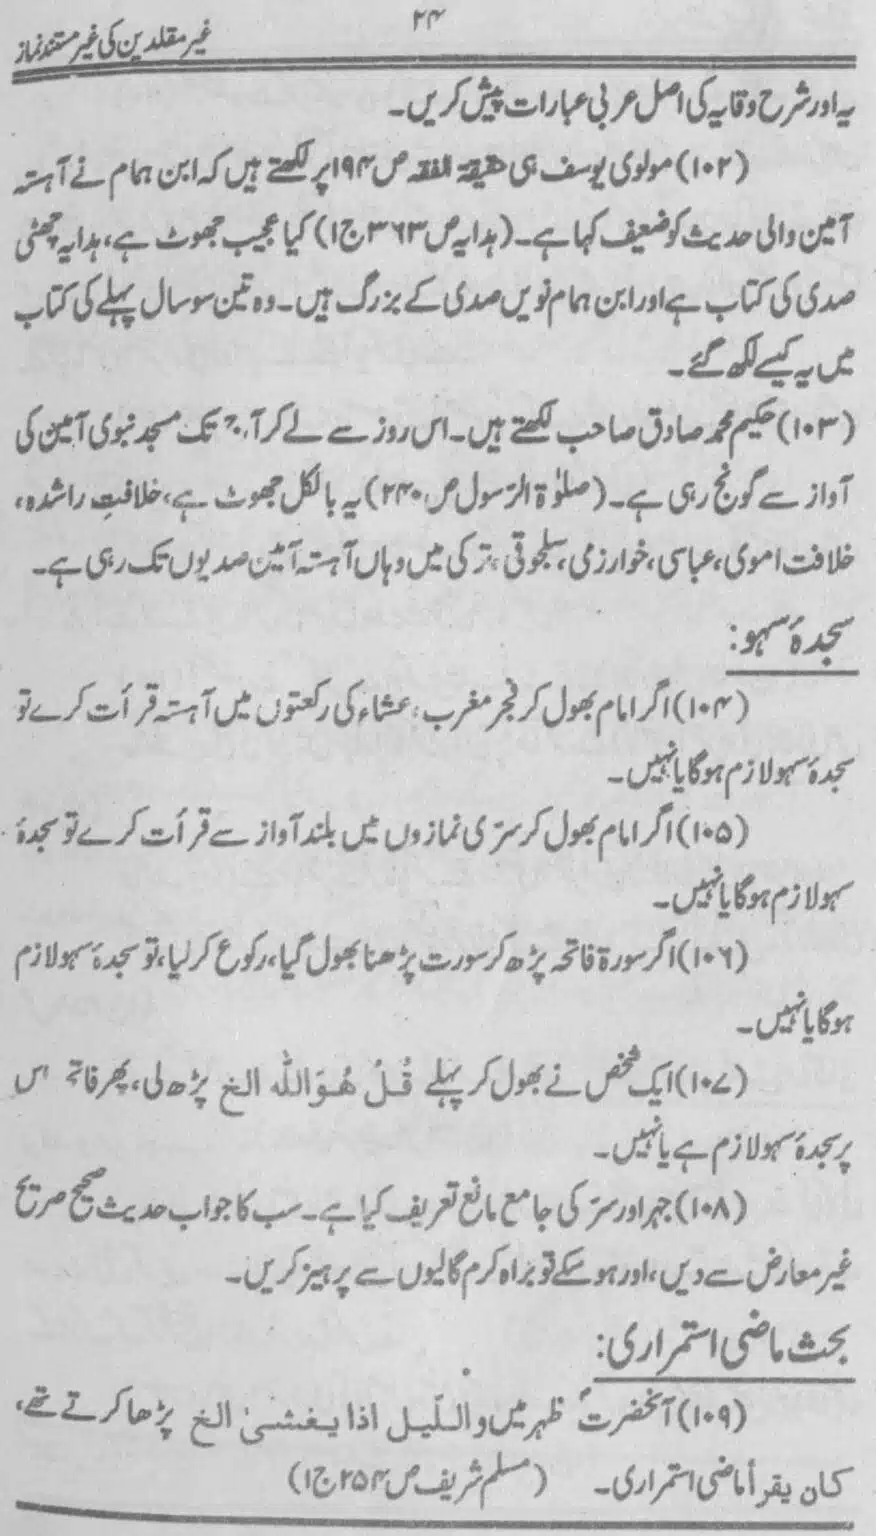 ۲۴
غیر مقلدین کی غیر مستند نماز
یہ اور شرح وقایہ کی اصل عربی عبارات پیش کریں۔
(۱۰۲) مولوی یوسف ہی حقیقۃ الفقہ ص۱۹۴ پر لکھتے ہیں کہ ابن ہمام نے آہستہ
آمین والی حدیث کو ضعیف کہا ہے۔ (ہدایہ ص۳۶۳ ج۱) کیا عجیب جھوٹ ہے، ہدایہ چھٹی
صدی کی کتاب ہے اور ابن ہمام نویں صدی کے بزرگ ہیں۔ وہ تین سو سال پہلے کی کتاب
میں یہ کیسے لکھ گئے۔
(۱۰۳) حکیم محمد صادق صاحب لکھتے ہیں۔ اس روز سے لے کر آج تک مسجد نبوی آمین کی
آواز سے گونج رہی ہے۔ (صلوٰۃ الرسول ص۲۴۰) یہ بالکل جھوٹ ہے، خلافتِ راشدہ،
خلافت اموی، عباسی، خوارزمی، سلجوقی، ترکی میں وہاں آہستہ آمین صدیوں تک رہی ہے۔
سجدۂ سہو:
(۱۰۴) اگر امام بھول کر فجر مغرب، عشاء کی رکعتوں میں آہستہ قرأت کرے تو
سجدۂ سہو لازم ہوگا یا نہیں۔
(۱۰۵) اگر امام بھول کر سرّی نمازوں میں بلند آواز سے قرأت کرے تو سجدۂ
سہو لازم ہوگا یا نہیں۔
(۱۰۶) اگر سورۃ فاتحہ پڑھ کر سورت پڑھنا بھول گیا، رکوع کر لیا، تو سجدۂ سہو لازم
ہوگا یا نہیں۔
(۱۰۷) ایک شخص نے بھول کر پہلے قُلْ هُوَ اللہ الخ پڑھ لی، پھر فاتحہ اس
پر سجدۂ سہو لازم ہے یا نہیں۔
(۱۰۸) جہر اور سرّ کی جامع مانع تعریف کیا ہے۔ سب کا جواب حدیث صحیح صریح
غیر معارض سے دیں، اور ہو سکے تو براہ کرم گالیوں سے پرہیز کریں۔
بحث ماضی استمراری:
(۱۰۹) آنحضرتؐ ظہر میں واللّیل اذا یغشیٰ الخ پڑھا کرتے تھے،
کان یقرأ ماضی استمراری۔ (مسلم شریف ص۲۵۴ ج۱)